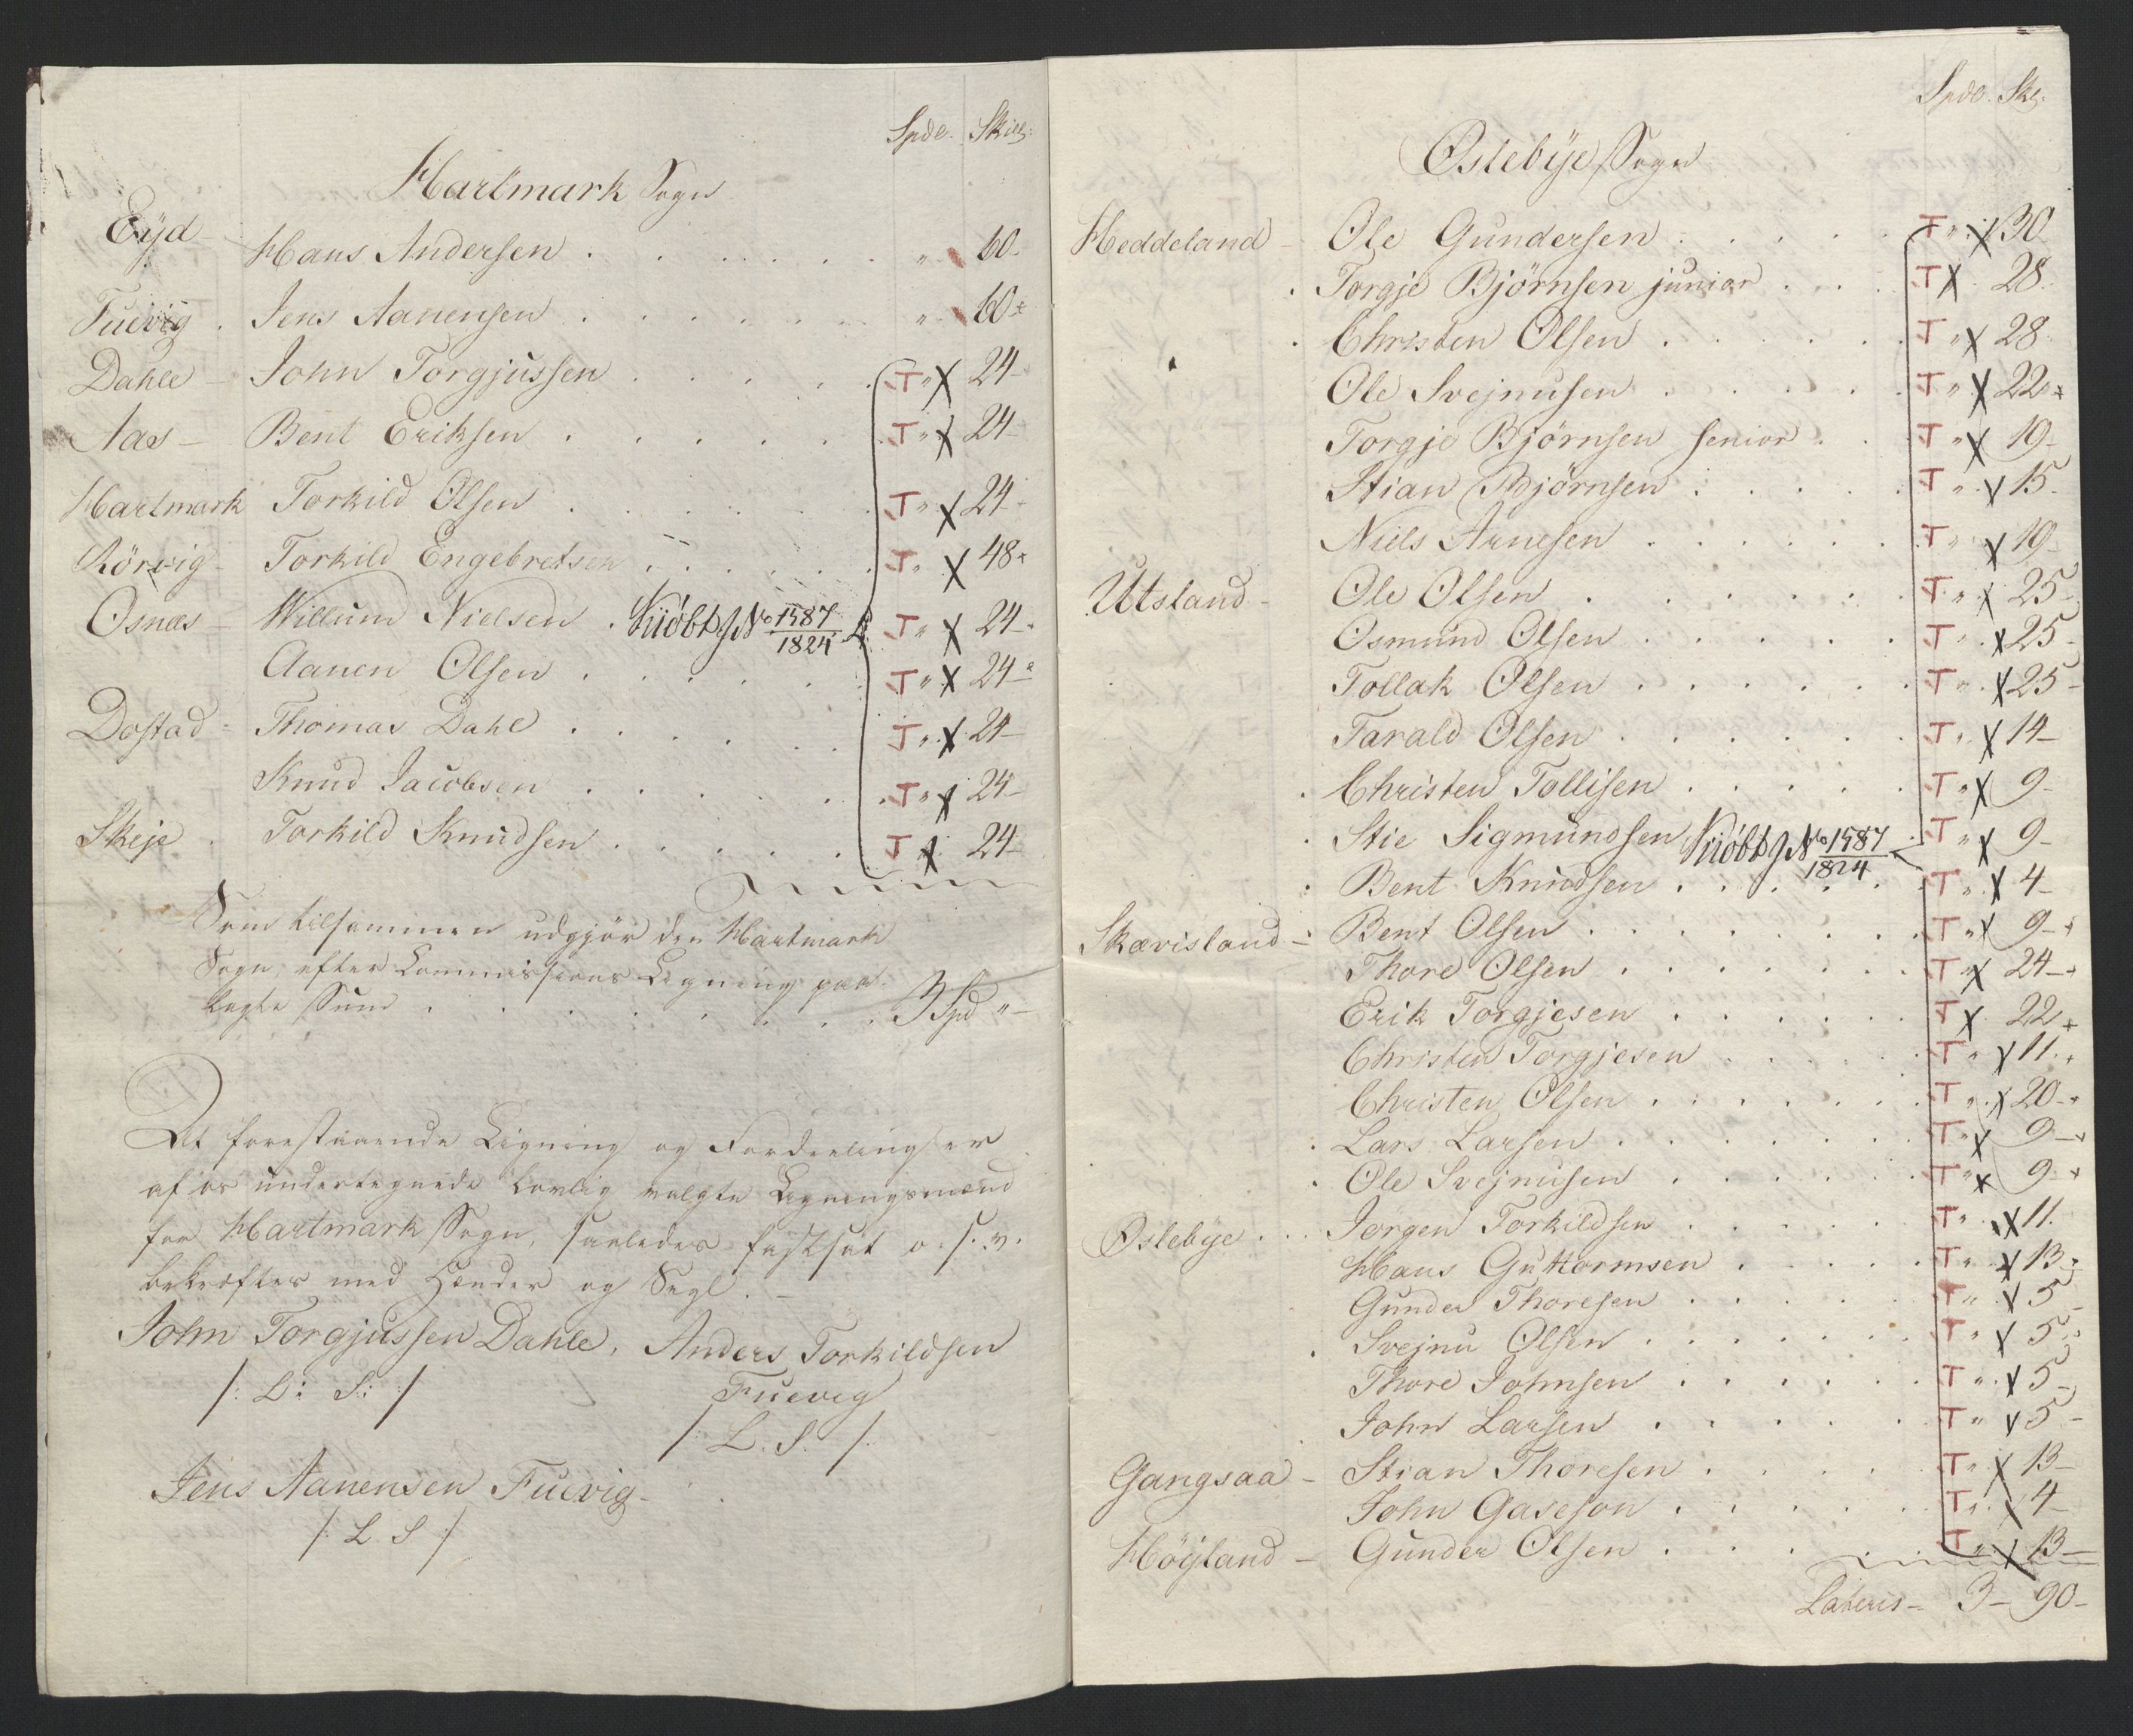 Spde. Skill:
Hartmark Sogn
Eyd - Hans Andersen . . . . . . . " 60.
Fuevig . Jens Aanensen . . . . . . . " 60
Dahle John Torgjussen . . . . . T " X 24-
Aas - Bent Eriksen . . . . . . T " X 24-
Hartmark Torkild Olsen . . . . . T " X 24-
Rörvig - Torkild Engebretsen . . . . . T " X 48
Osnæs - Willum Nielsen . Kiöbt J No 1587/1824 T " X 24-
Aanen Olsen . . . . . . T " X 24-
Dostad - Thomas Dahl . . . . . . T " X 24-
Knud Jacobsen . . . . . . T " X 24-
Skeje . Torkild Knudsen . . . . . T X 24-
Som tilsammen udgjör den Hartmark
Sogn, efter Commissions Ligning paa-
lagte Sum . . . . . . . 3 Spd " -
Det forestaaende Ligning og Fordeeling er
af os undertegnede lovlig valgte Ligningsmænd
for Hartmark Sogn, saaledes fastsat o. s. v.
bekræftes med Hænder og Segl. -
John Torgjussen Dahle, Anders Torkildsen
/: L: S: :/ Fuevig
/: L. S. :/
Jens Aanensen Fuevig -
/: L. S :/
Spde. Sk:
Øslebye Sogn
Heddeland - Ole Gundersen . . . . . T " X 30
Torgje Björnsen junior . . . T X 28.
Christen Olsen . . . . . . T " X 28
Ole Svejnusen . . . . . . T " X 22
Torgje Björnsen senior . . . T " X 19-
Stian Björnsen . . . . . T " X 15.
Niels Arnesen . . . . . . T " X 19-
Utsland - Ole Olsen . . . . . . T " X 25-
Osmund Olsen . . . . . T " X 25-
Tollak Olsen . . . . . . T " X 25-
Tarald Olsen . . . . . . T " X 14-
Christen Tollisen . . . . . T " X 9-
Stie Sigmundsen Kiöbt J No 1587/1824 T " X 9-
Bent Knudsen . . . . . . T " X 4-
Skævisland - Bent Olsen . . . . . . . T " X 9-
Thore Olsen . . . . . . . T " X 24-
Erik Torgjesen . . . . . . T X 22
Christen Torgjesen . . . . . T " X 11.
Christen Olsen . . . . . . T " X 20-
Lars Larsen . . . . . . . T " X 9-
Ole Svejnusen . . . . . . T " X 9-
Øslebye . . . Jörgen Torkildsen . . . . . T " X 11.
Hans Guttormsen . . . . . T " X 13-
Gunder Thoresen . . . . . T " X 5-
Svejnu Olsen . . . . . . T " X 5-
Thore Johnsen . . . . . . T " X 5-
John Larsen . . . . . . T " X 5-
Gangsaa - Stian Thoresen . . . . . T " X 13-
John Gaseson . . . . . T " X 4-
Höyland - Gunder Olsen . . . . . T " X 13-
Lateris - 3 - 90-